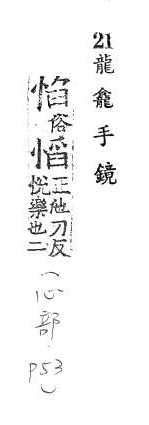 21龍龕手鏡
惂俗慆正他刀反悅樂也二（心部P53）